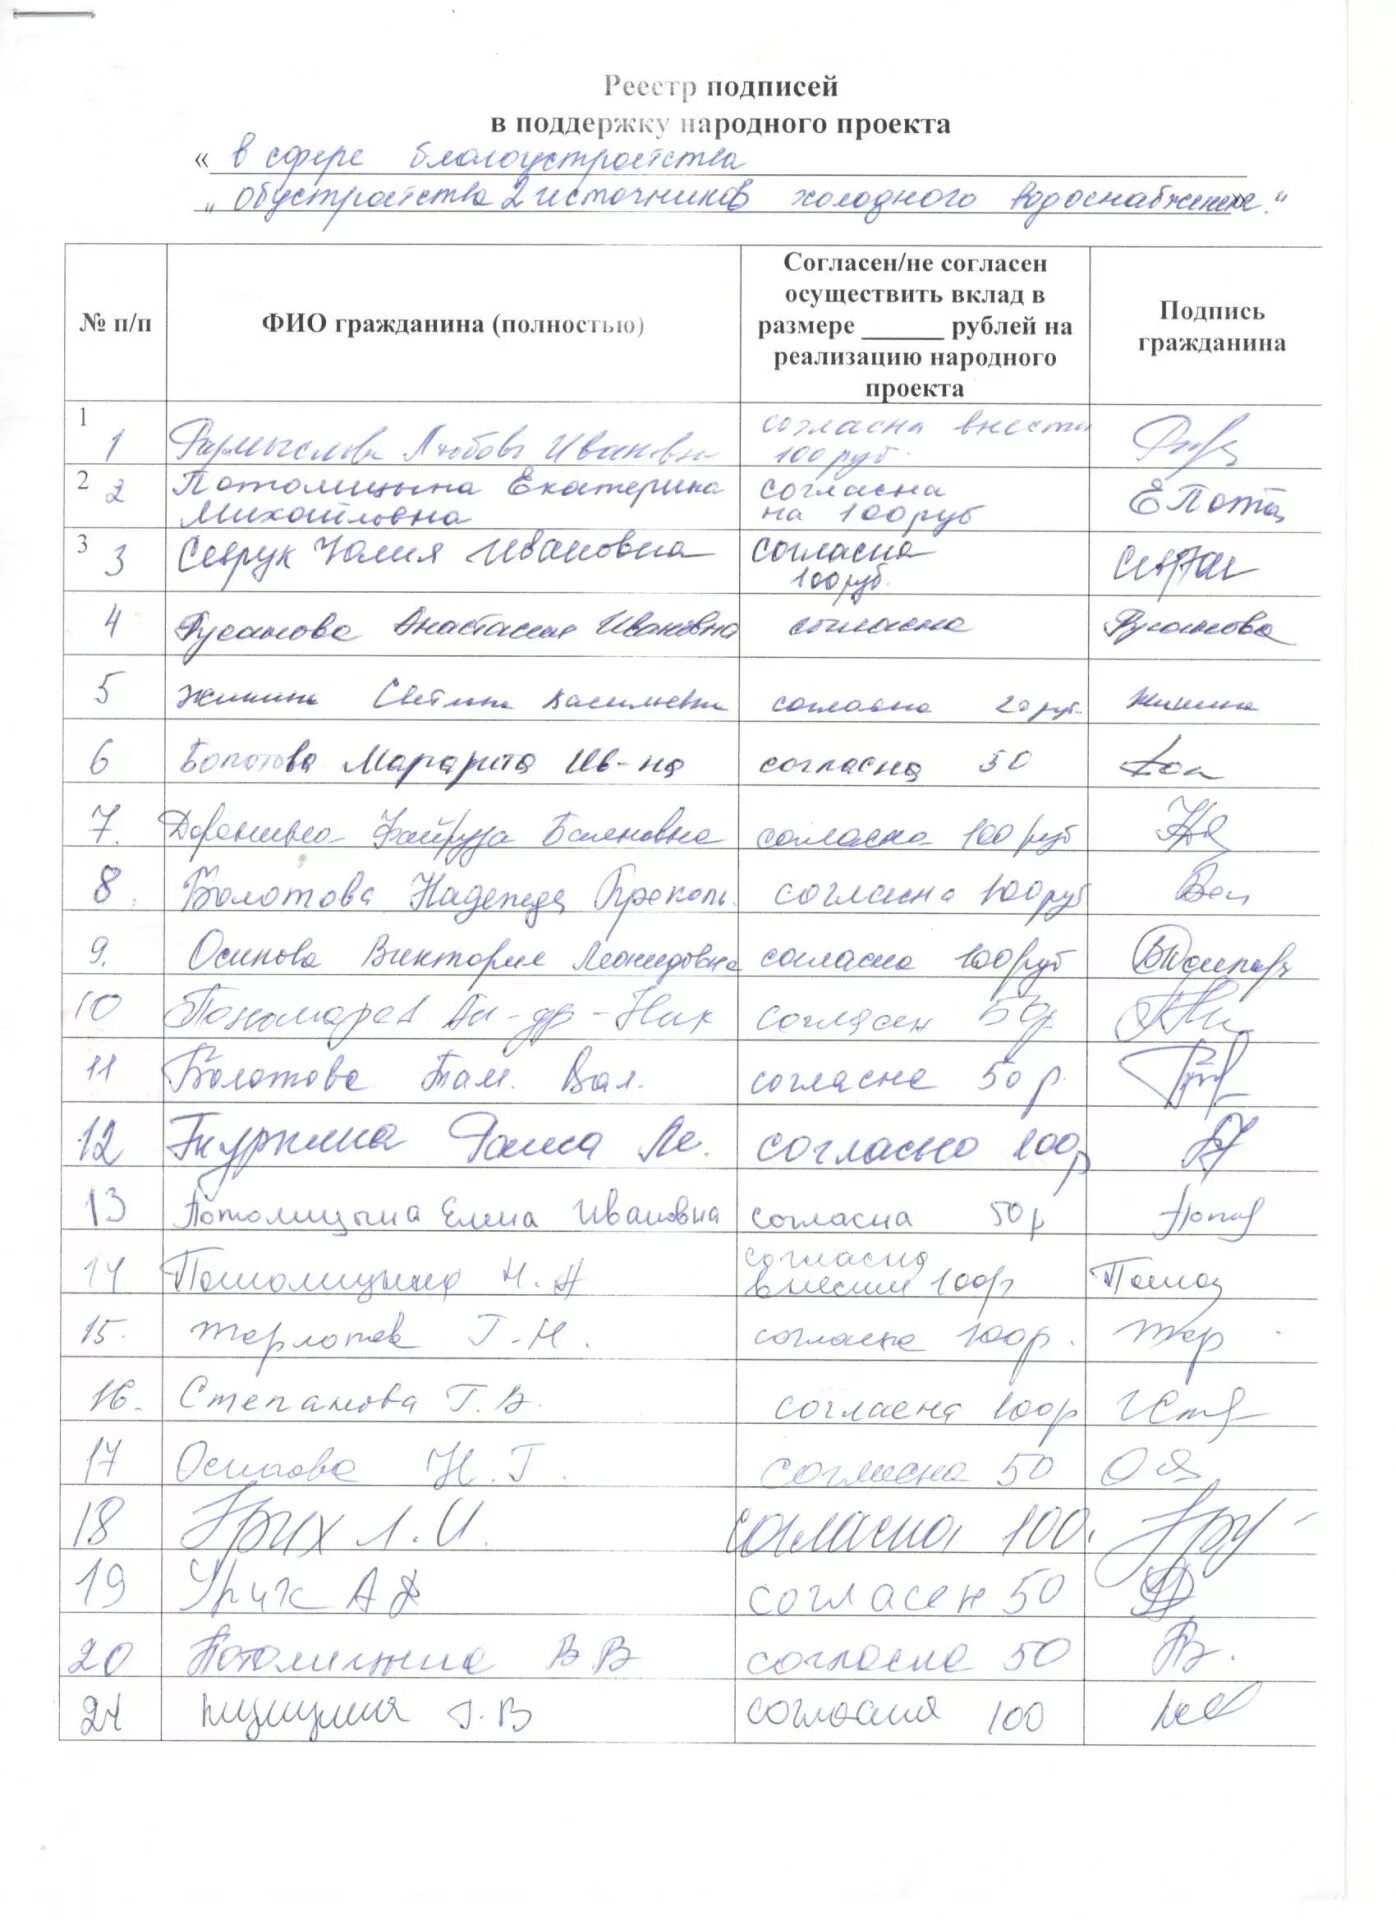 Реестр подписей
в поддержку народного проекта
« в сфере благоустройства
„ Обустройства 2 источников холодного водоснабжения."
№ п/п
ФИО гражданина (полностью)
Согласен/не согласен
осуществить вклад в
размере ______ рублей на
реализацию народного
проекта
Подпись
гражданина
1 1 Любовь Ивановна согласна внести
100 руб.
2 2 Потолицына Екатерина согласна ЕПот
Михайловна на 100 руб
3 3 Севрук Юлия Ивановна согласна
100 руб.
4 Русанова Анастасия Ивановна согласна Русанова
5 Жинина Светлана Васильевна согласна 20 руб. Жинина
6 Болотова Марарита Ив-на согласна 50
7. Файруза Баяновна согласна 100 руб
8. Болотова Надежда Прокопь. согласна 100 руб Бол
9. Осипова Виктория Леонидовна согласна 100 руб
10 Пономарев Ник согласен 50р
11 Болотова Там. Вал. согласна 50 р.
12 Раиса согласна 100р
13 Потолицына Елена Ивановна согласна 50р Потол
14 Потолицына Н. А согласна
внести 100р
15. Г-Н. согласна 100р. Жер
16. Степанова Г. В. согласна 100р ГСт
17 Осипова Н. Г. согласна 50
18 Урих Л. И. согласна 100.
19 Урих А согласен 50
20 Потолицына В В согласна 50 ПВ.
21 Г. В согласия 100